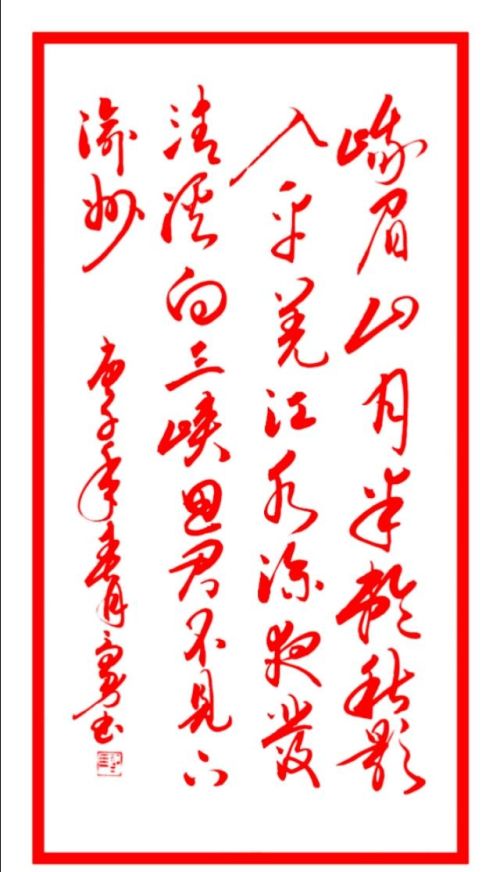 峨眉山月半輪秋影
入平羌江水流夜發
清溪向三峡思君不見下
渝州
庚子年春月